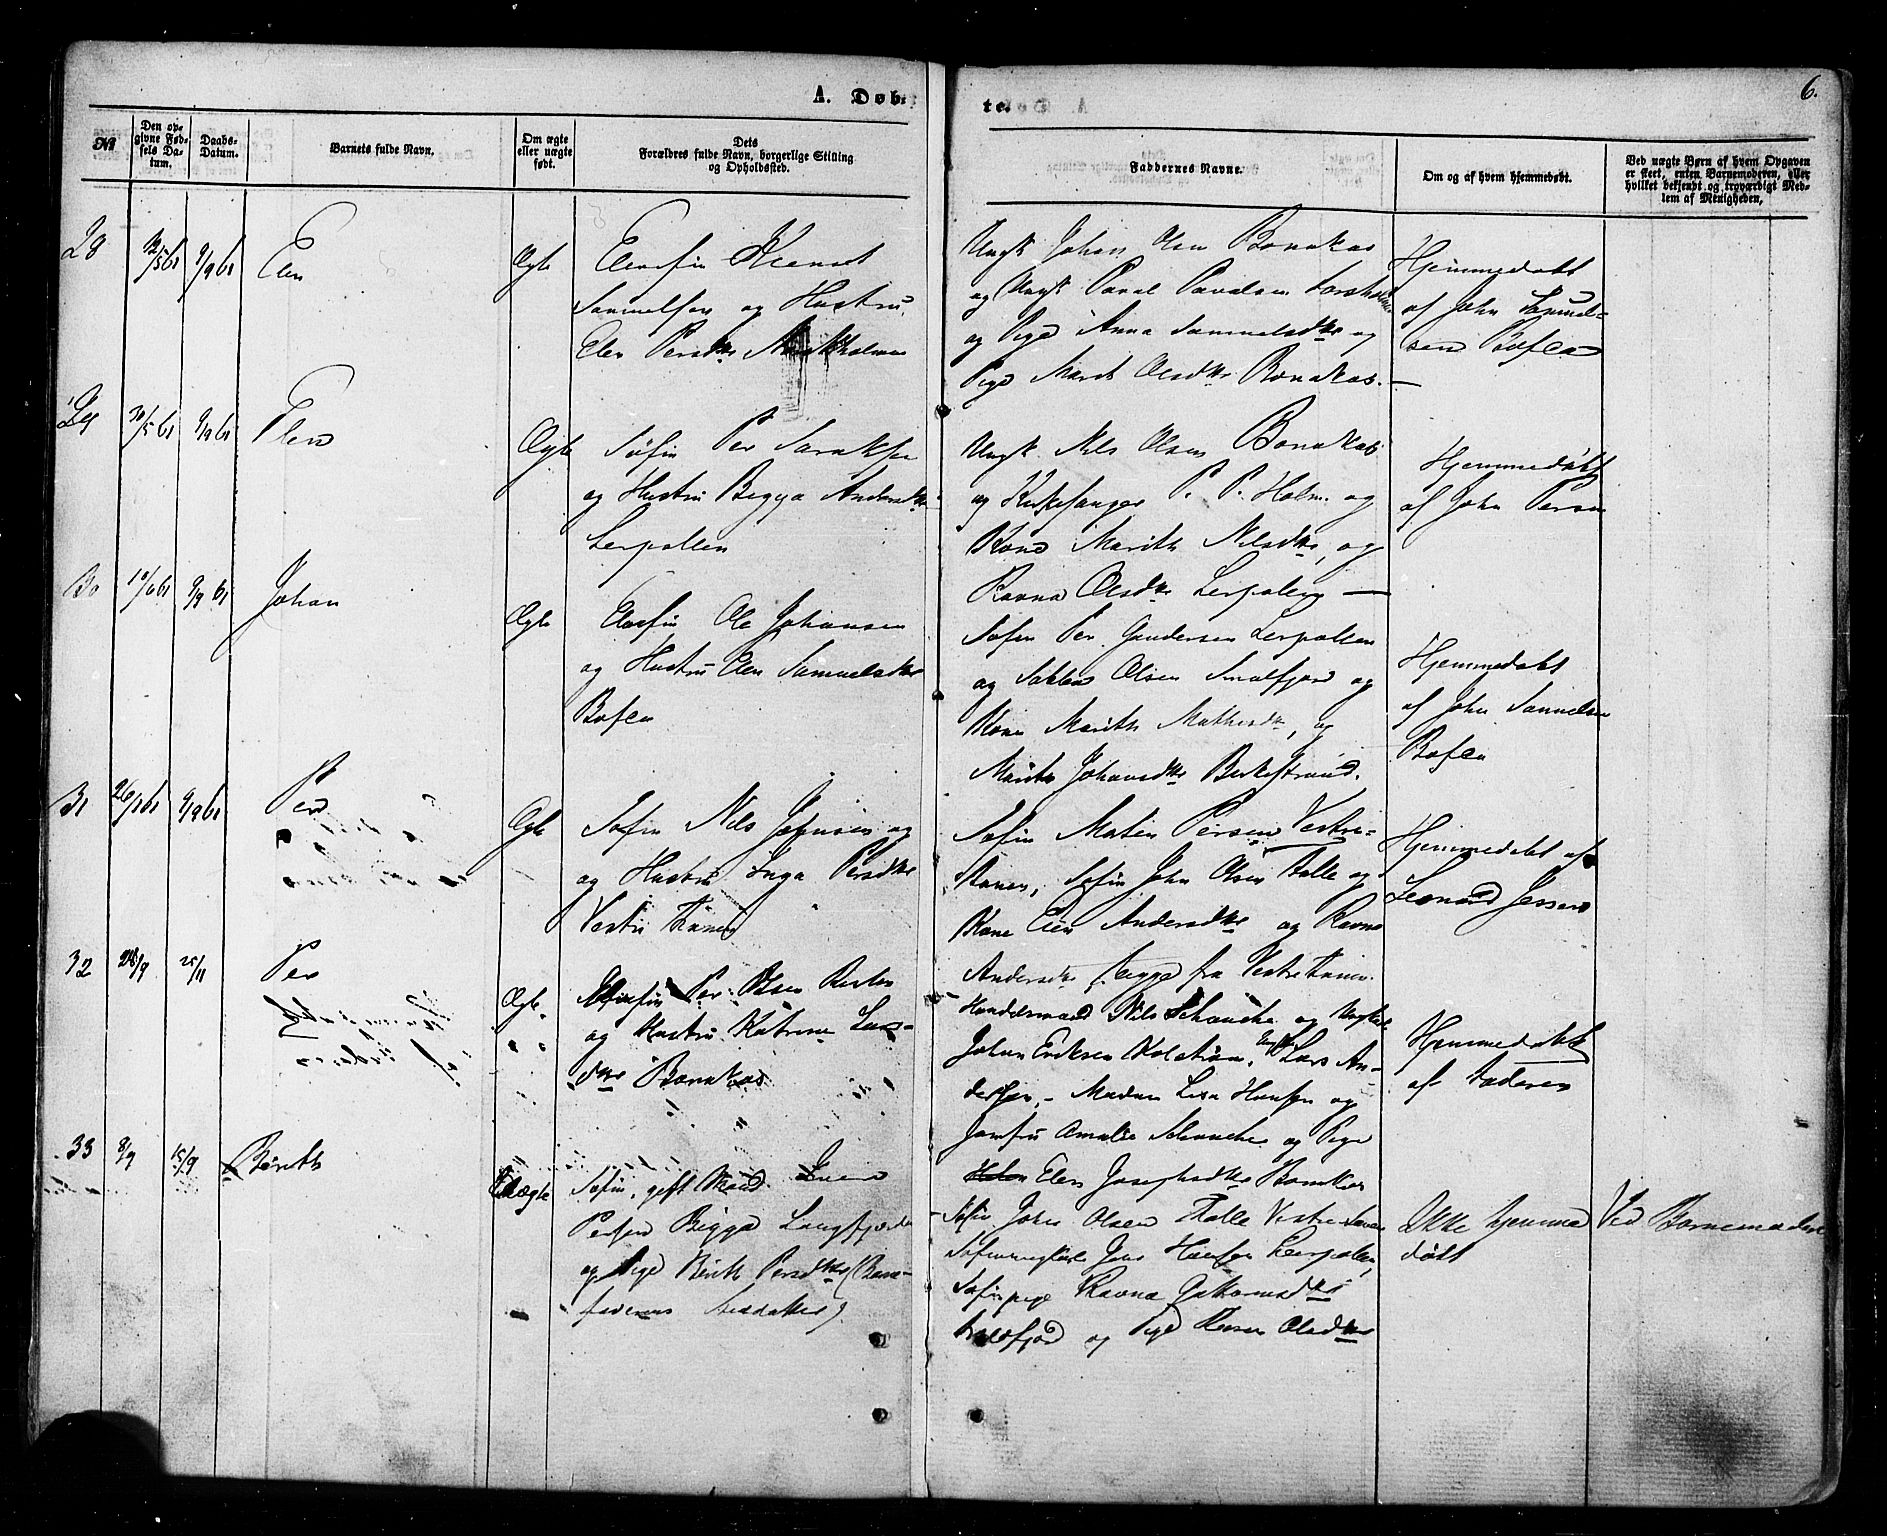 A. Døb-
te.
6.
№
Den op-
givne Fød-
sels Da-
tum.
Daabs-
Datum.
Barnets fulde Navn.
Om ægte
eller uægte
født.
Dets
Forældres fulde Navn, borgerlige Stilling
og Opholdssted.
Faddernes Navne.
Om og af hvem hjemmedøbt.
Ved uægte Børn af hvem Opgaven
er skeet, enten Barnemoderen, eller
hvilket bekjendt og troværdigt Med-
lem af Menigheden.
28
9/9 61
Elen
Ægte
Samuelsen og Hustru
Elen Persdtr
Ungk Johan Olsen Bonakas
og Ungk Poval Povelsen
og Pige Anna Samuelsdtr og
Pige Marit Olsdtr Bonakas.
Hjemmedøbt
af John Samuel-
sen Bofca
29
30/5 61
9/9 61
Elen
Ægte
Søfin Per Saraksen
og Hustru Bigga Andersdtr
Lerpollen
Ungk. Nils Olsen Bonakas
og Kirkesanger P. P. Holm. og
Kone Marith Nilsdtr, og
Ravna Olsdtr Lerpolen
Hjemmedøbt
af John Persen
30
10/6 61
9/9 61
Johan
Ægte
Elvefin Ole Johansen
og Hustru Elen Samuelsdtr
Bofca
Søfin Per Gundersen Lerpollen
og Sabba Olsen Smalfjord og
Kone Marith Mathisdtr, og
Marith Johansdtr Birkestrand.
Hjemmedøbt
af John Samuelsen
Bofca
31
9/9 61
Per
Ægte
Søfin Nils Johnsen og
og Hustru Inga Persdtr
Vestre Tanen
Søfin Matis Persen Vestre-
Tanen, Søfin John Olsen Talle og
Kone Elen Andersdtr og Ravna
Andersdtr begge fra Vestre Tanen.
Hjemmedøbt af
Leonard Jessen
32
28/9
25/11
Per
Ægte
Elvefin Per Olsen
og Hustru Katrine Lars-
dtr Bonakas
Handelsmand Nils Schanche og Ungkarl
Johan Eriksen Kolstrøm, Ungk Lars An-
dersen, - Madam Lisa Hansen og
Jomfru Amalie Schanche og Pige
Elen Josephsdtr Bonakas
Hjemmedøbt
af Faderen
33
8/9
15/9
Berith
Uægte
Søfin, gift Mand
Persen Bigga Langfjorden
og Pige Berit Persdtr (Barne-
faderens Steddatter)
Søfin John Olsen Talle Vestre Tanen
Søfinungkarl Jon Hansen Lerpolen,
Søfinpige Ravna
og Pige Karen Olsdtr
Ikke hjemme
døbt
Ved Barnemoderen